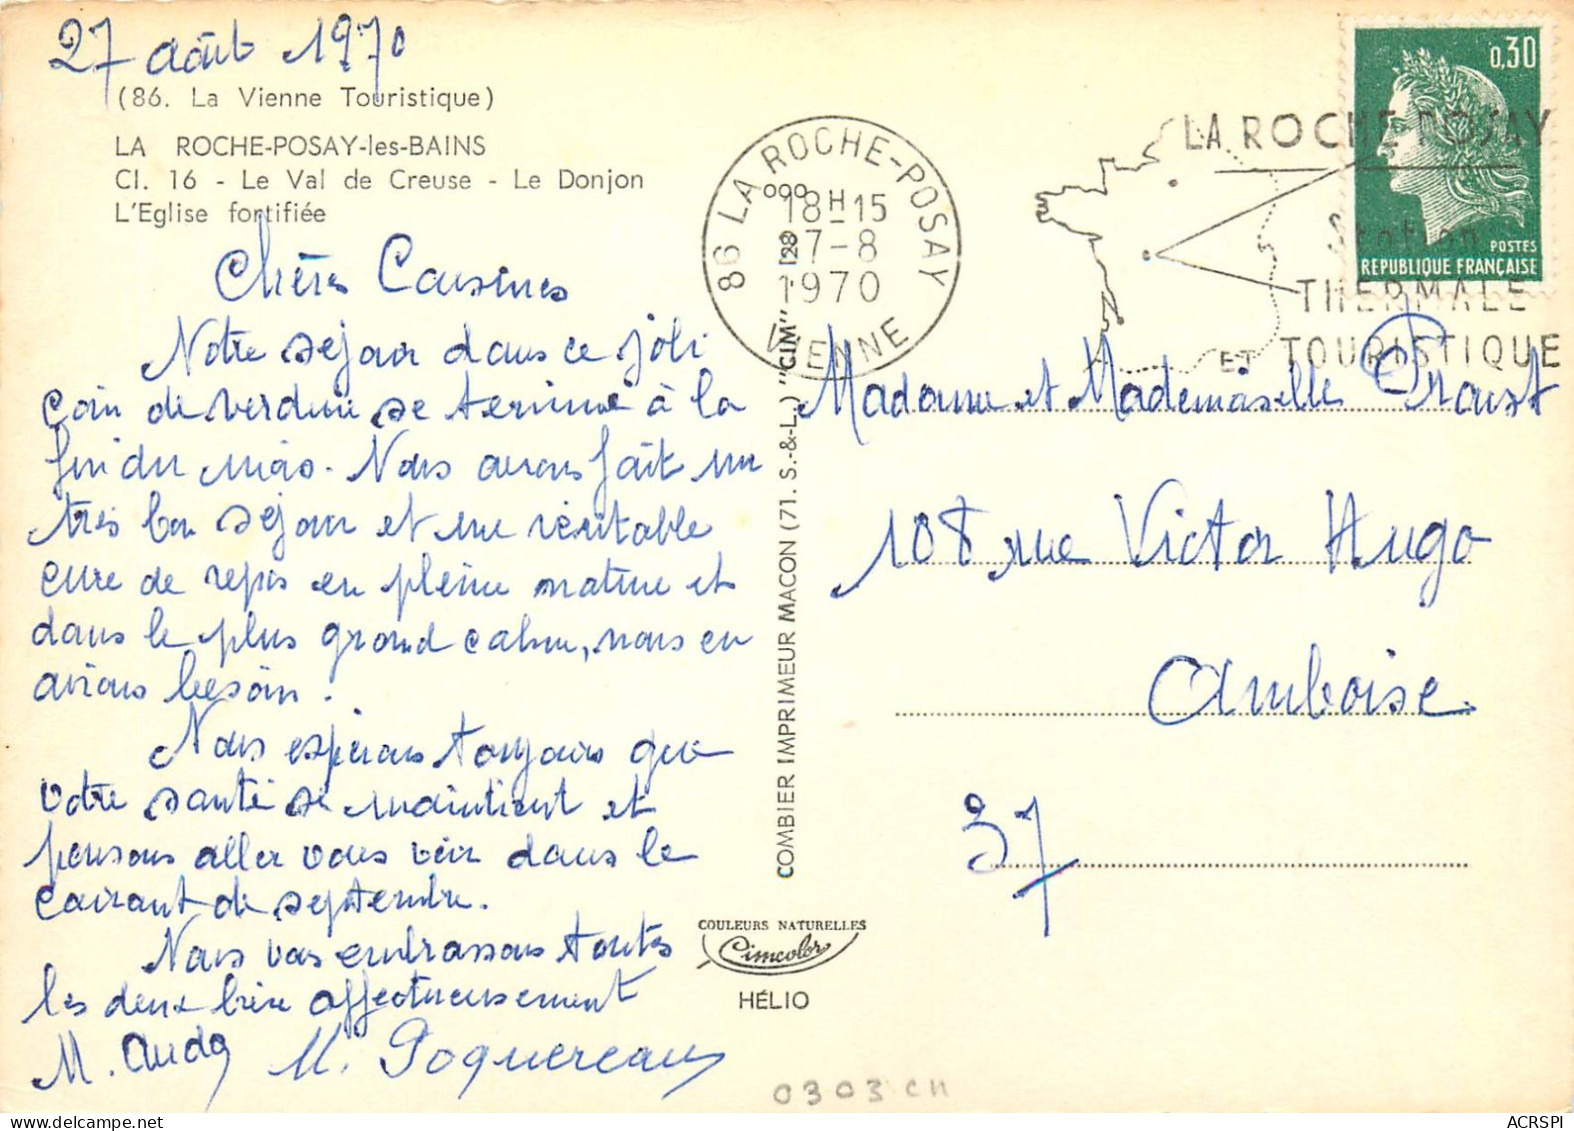 27 août 1970
(86. La Vienne Touristique)
LA ROCHE-POSAY-les-BAINS
Cl. 16 - Le Val de Creuse - Le Donjon
L'Eglise fortifiée
Chères Cousines
Notre séjour dans ce joli
coin de verdure se termine à la
fin du mois. Nous avons fait un
très bon séjour et une véritable
cure de repos en pleine nature et
dans le plus grand calme, nous en
avions besoin.
Nous espérons toujours que
votre santé se maintient et
pensons aller vous voir dans le
courant de septembre.
Nous vous embrassons toutes
les deux bien affectueusement
M. Auda M. Poquereau
86 LA ROCHE-POSAY
18H15
27-8
1970
VIENNE
LA ROCHE POSAY
Station
THERMALE
ET TOURISTIQUE
0,30
POSTES
REPUBLIQUE FRANÇAISE
COMBIER IMPRIMEUR MACON (71. S.-&-L.) "CIM"
COULEURS NATURELLES
Cimcolor
HÉLIO
Madame et Mademoiselle Proust
108 rue Victor Hugo
Amboise
37
0303 CH
ACRSPI